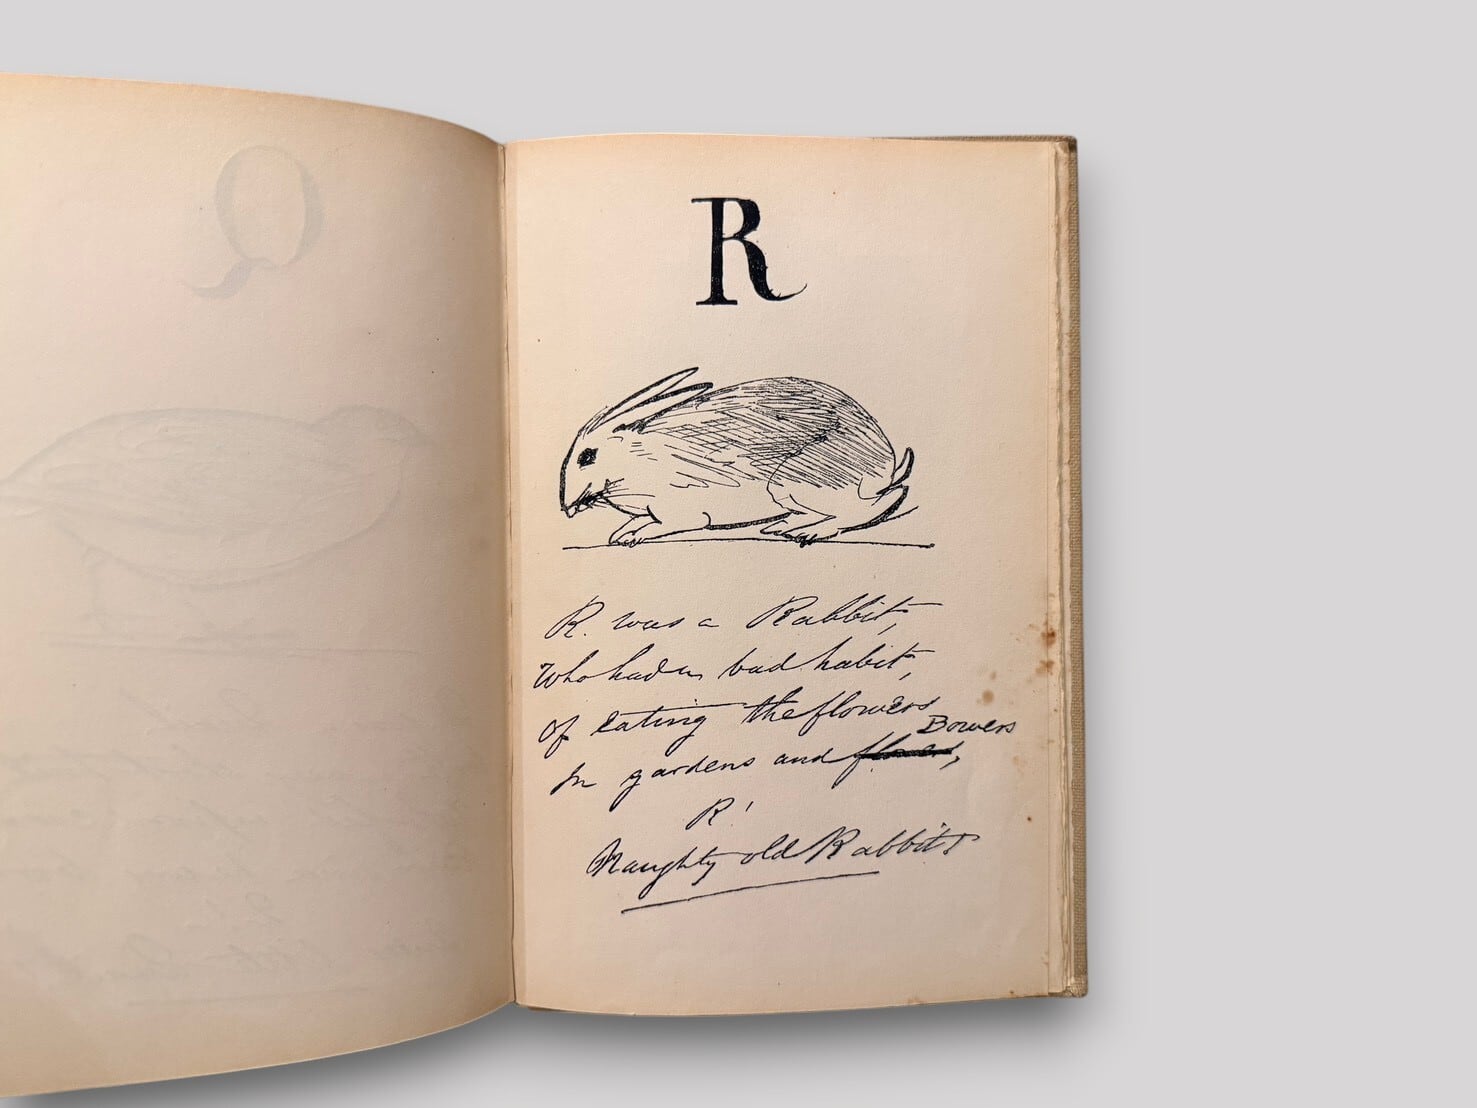 Q
R
R. was a Rabbit,
Who had a bad habit,
Of eating the flowers
In gardens and Bowers,
R!
Naughty old Rabbit